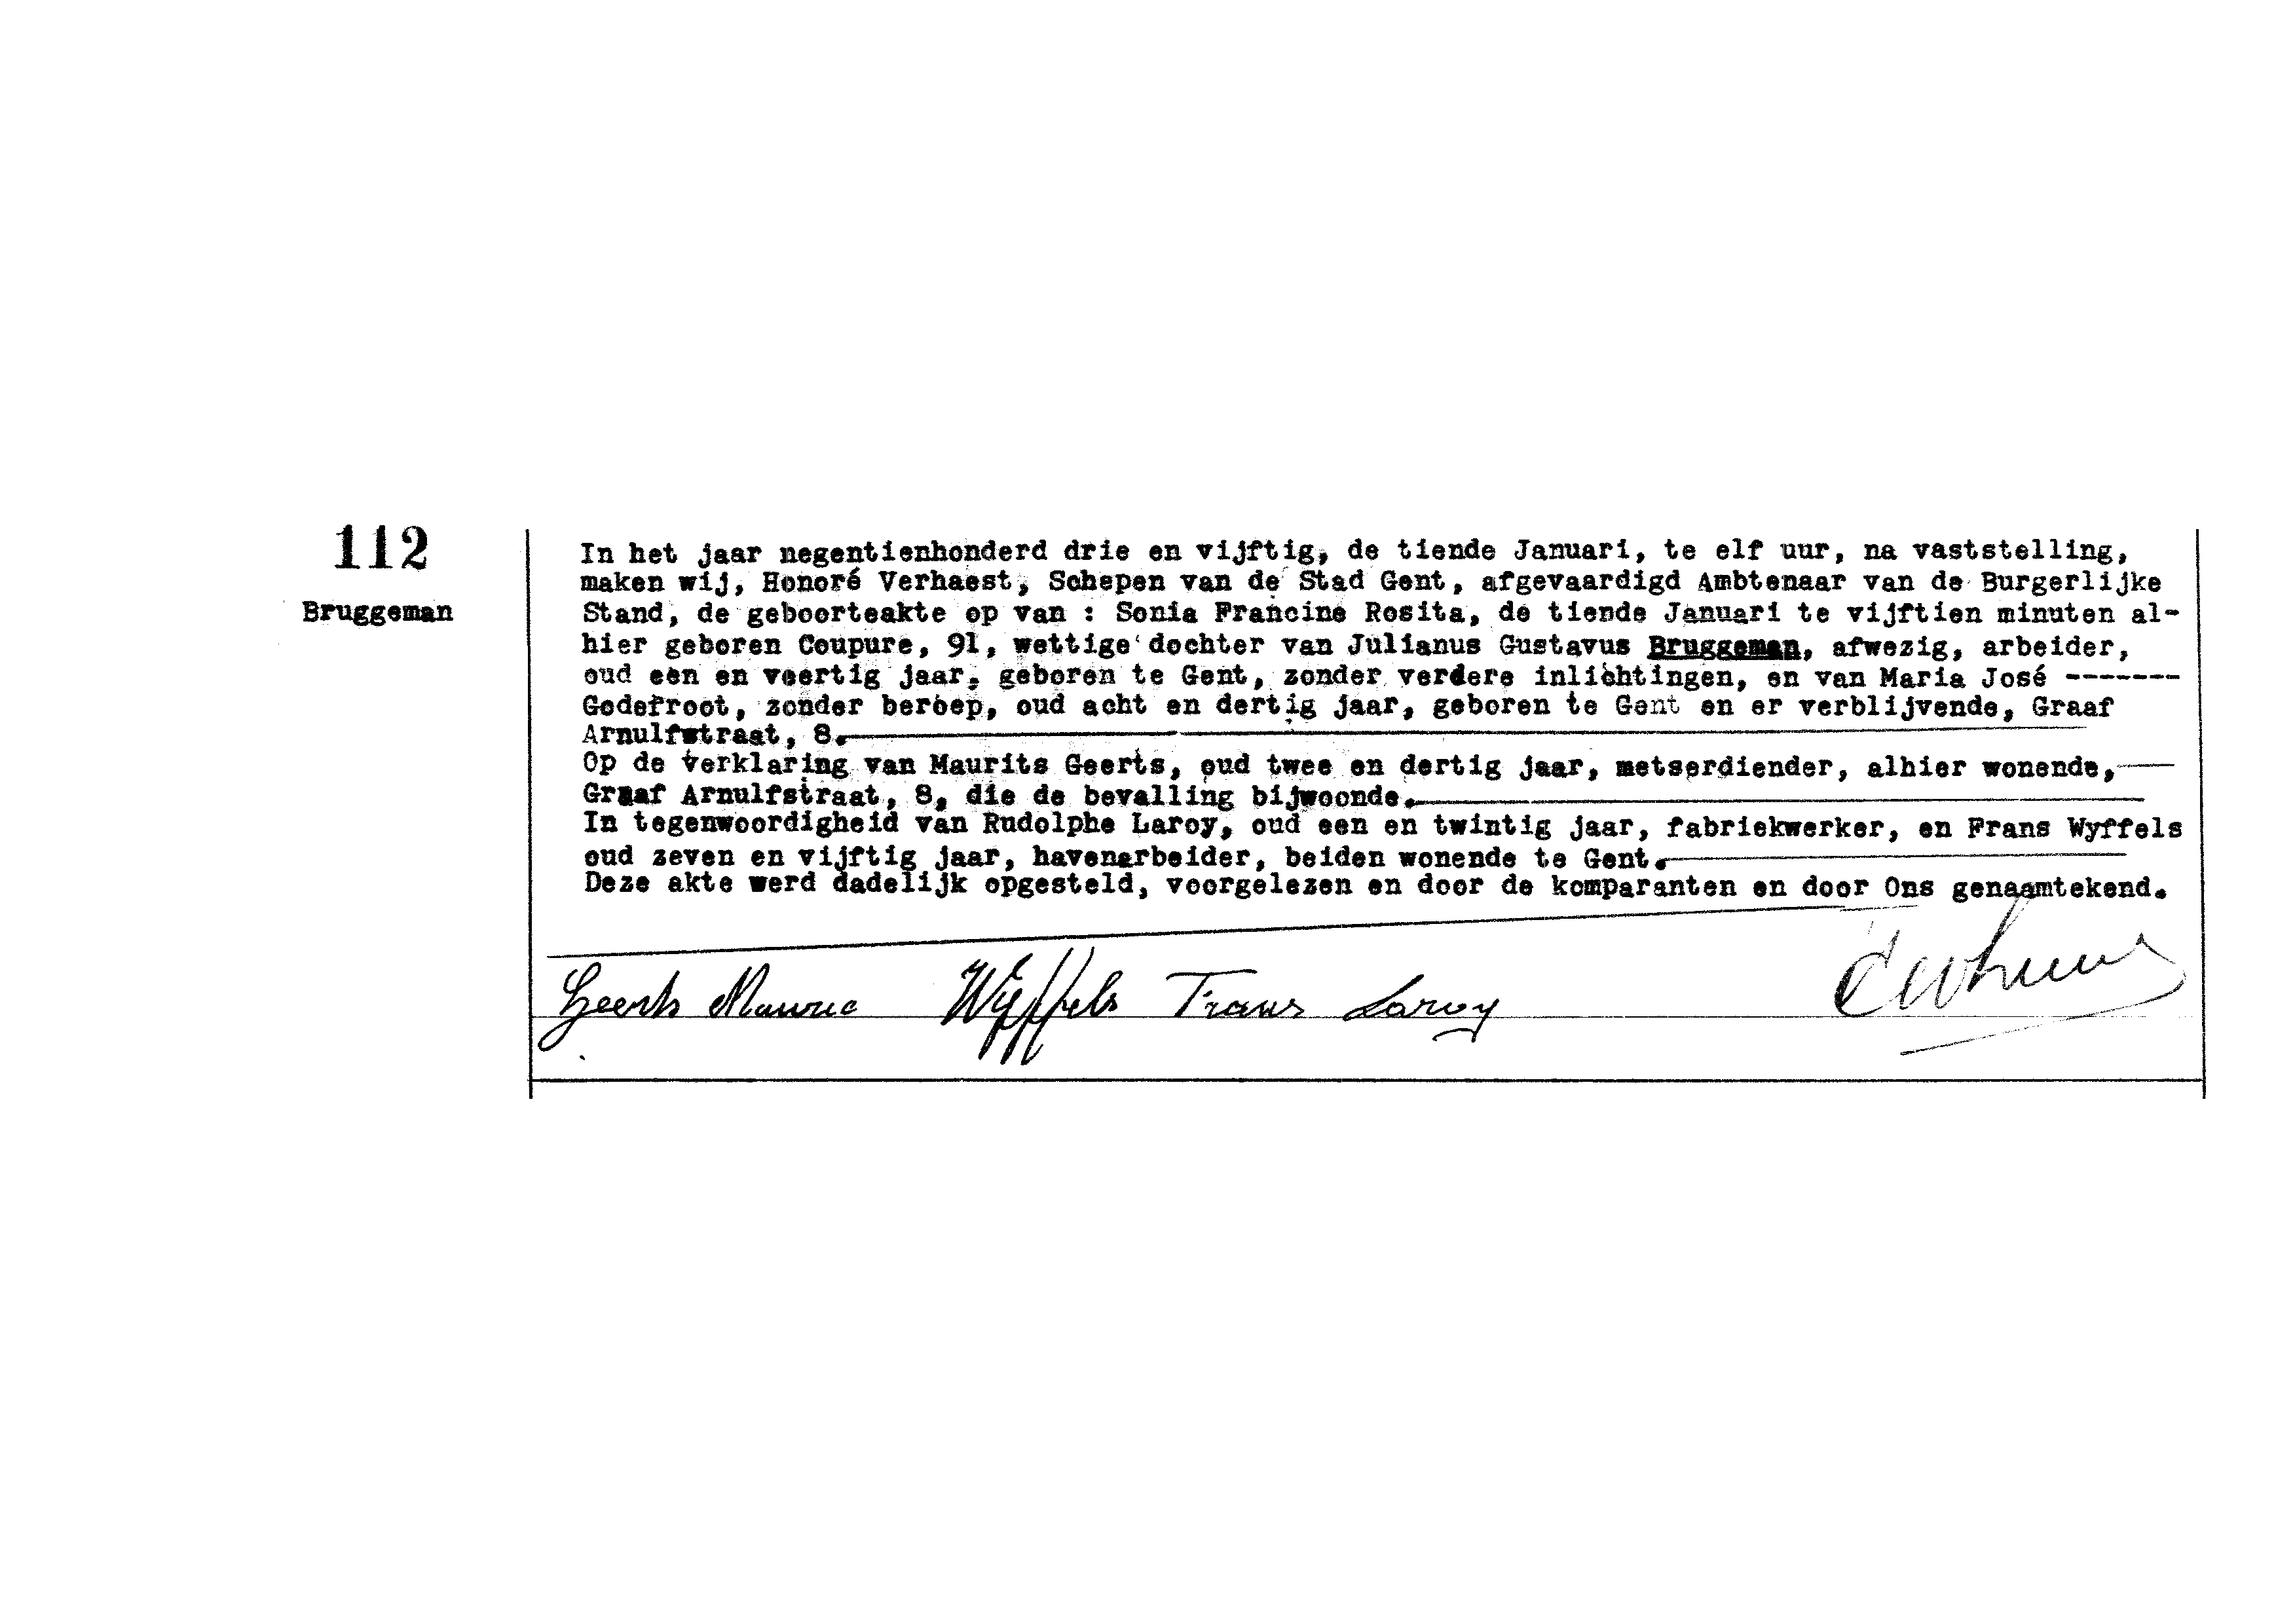 112
Bruggeman
In het jaar negentienhonderd drie en vijftig, de tiende Januari, te elf uur, na vaststelling,
maken wij, Honoré Verhaest, Schepen van de Stad Gent, afgevaardigd Ambtenaar van de Burgerlijke
Stand, de geboorteakte op van : Sonia Francine Rosita, de tiende Januari te vijftien minuten al-
hier geboren Coupure, 91, wettige dochter van Julianus Gustavus Bruggeman, afwezig, arbeider,
oud een en veertig jaar, geboren te Gent, zonder verdere inlichtingen, en van Maria José -------
Godefroot, zonder beroep, oud acht en dertig jaar, geboren te Gent en er verblijvende, Graaf
Arnulfstraat, 8.
Op de verklaring van Maurits Geerts, oud twee en dertig jaar, metserdiender, alhier wonende,
Graaf Arnulfstraat, 8, die de bevalling bijwoonde.
In tegenwoordigheid van Rudolphe Laroy, oud een en twintig jaar, fabriekwerker, en Frans Wyffels
oud zeven en vijftig jaar, havenarbeider, beiden wonende te Gent.
Deze akte werd dadelijk opgesteld, voorgelezen en door de komparanten en door Ons genaamtekend.
Geerts Maurice Wyffels Frans Laroy